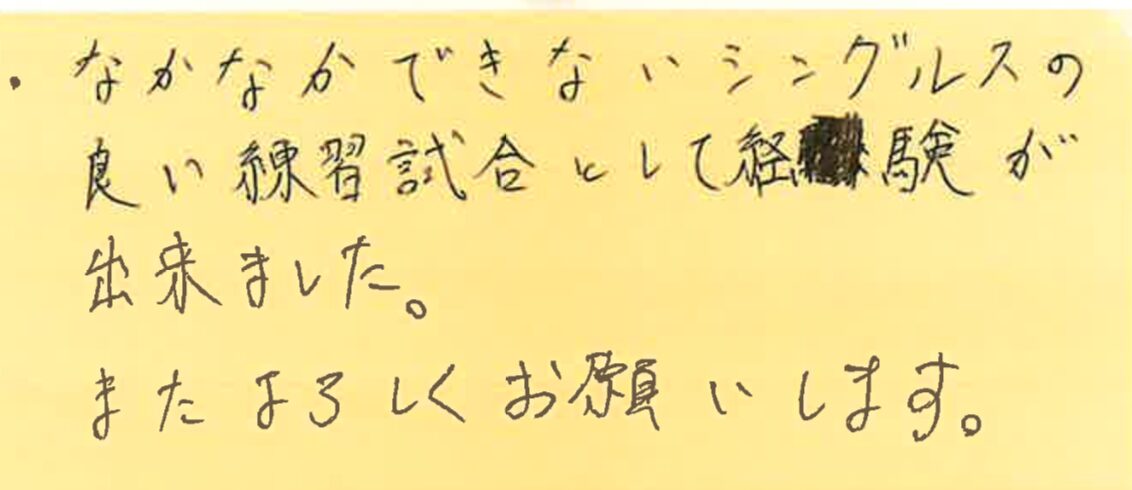 ・なかなかできないシングルスの
良い練習試合として経験が
出来ました。
またよろしくお願いします。